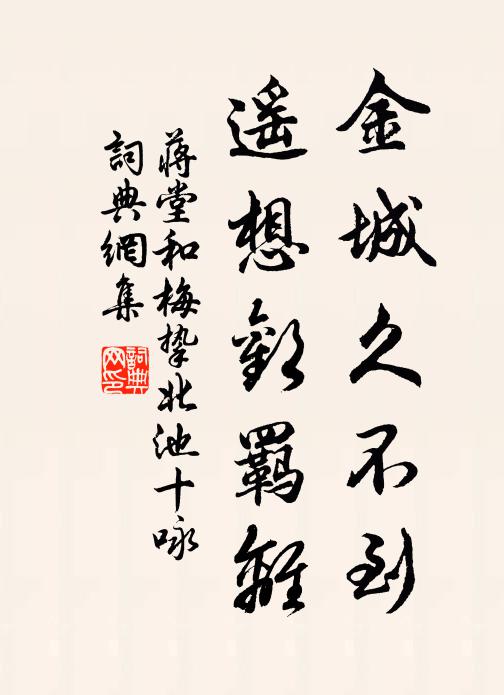 金城久不到
遥想歎羈離
蔣堂和梅挚北池十咏
詞典網集
詞典
网印